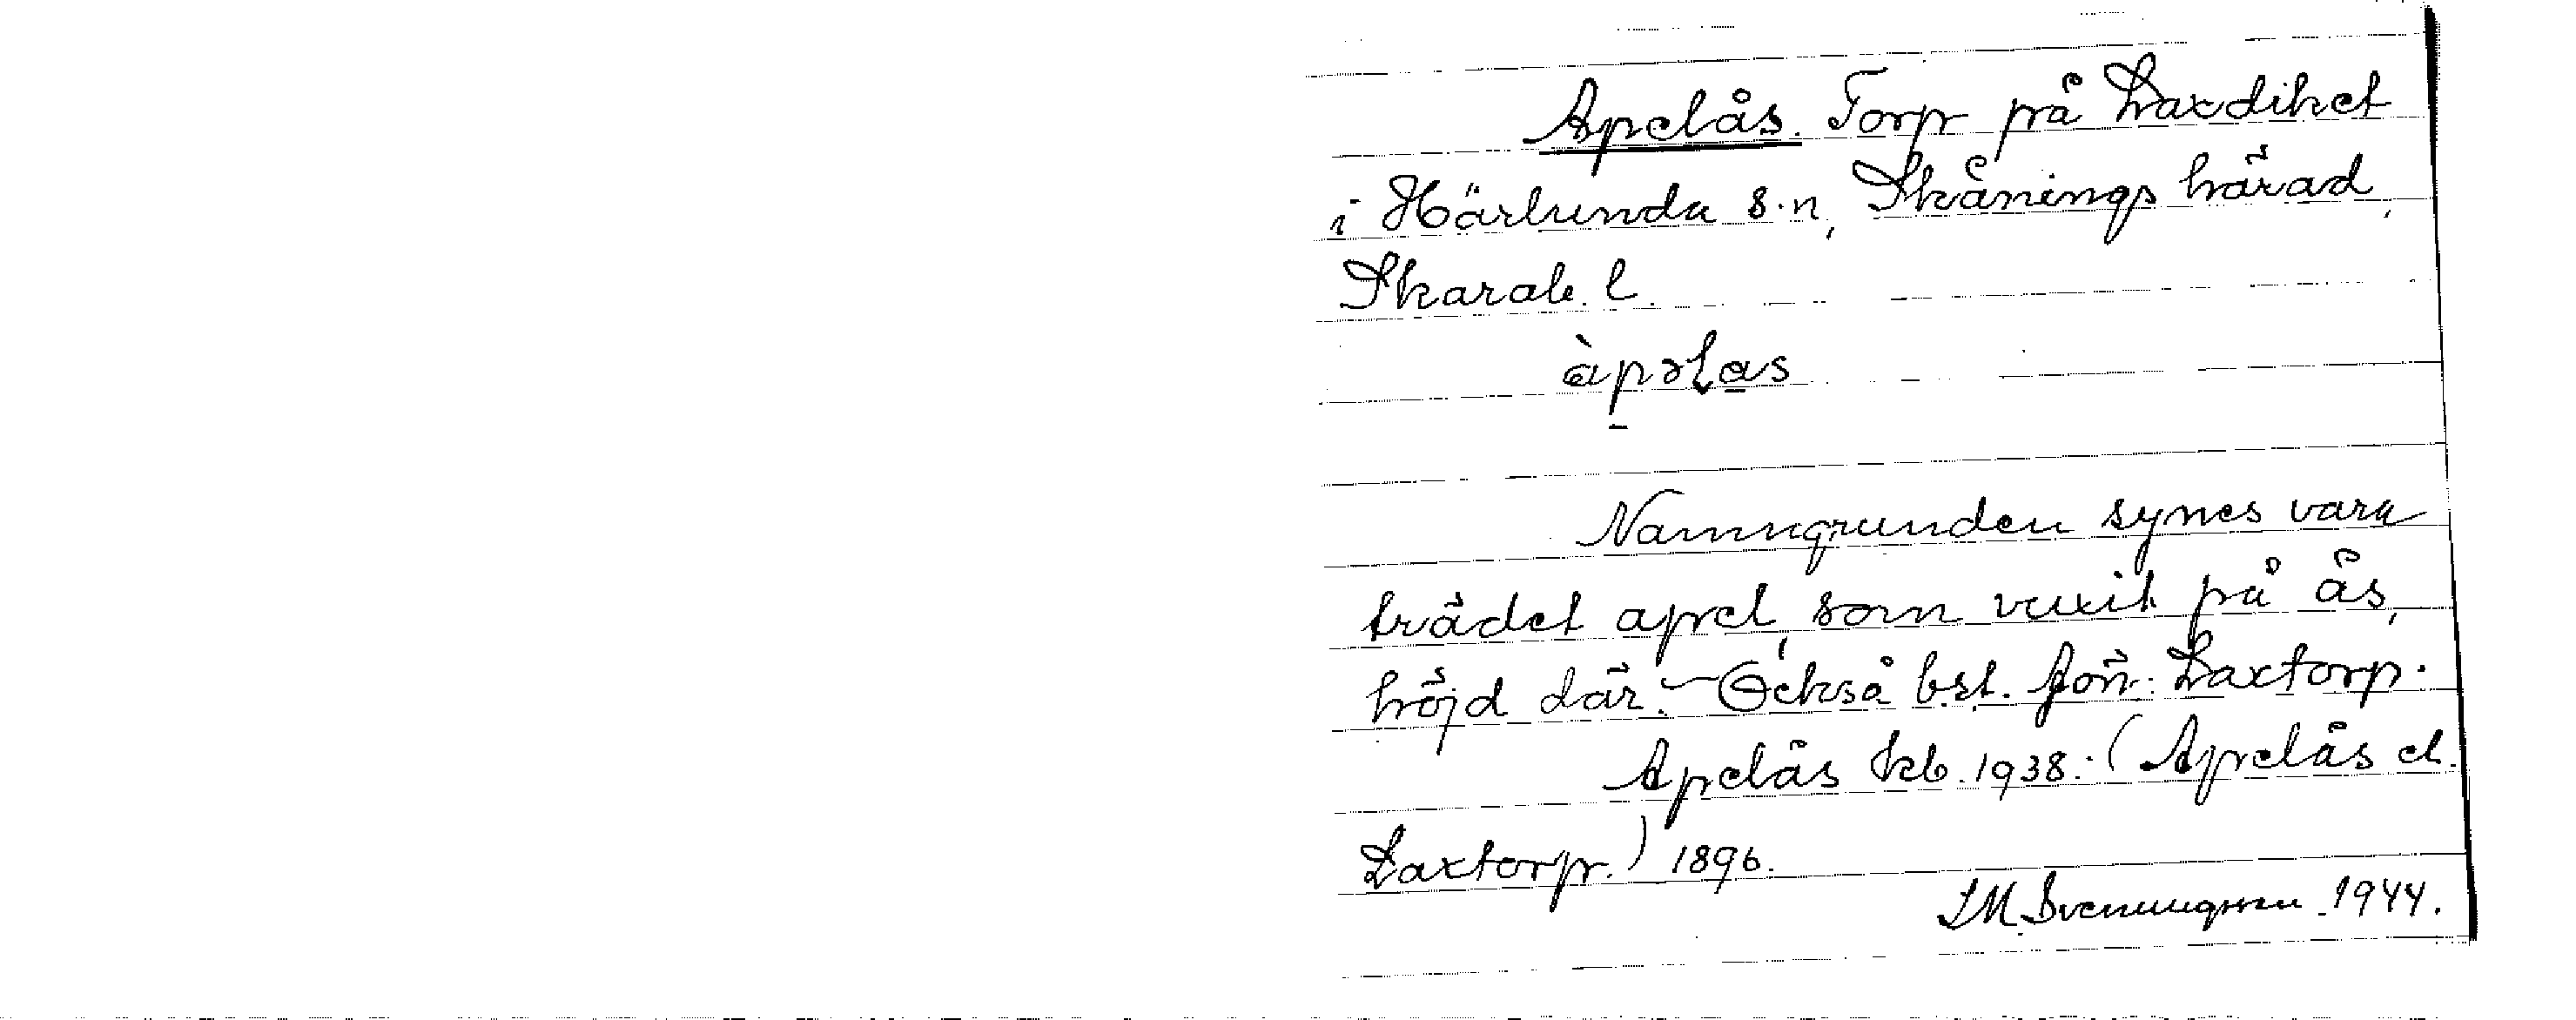 Apelås. Torp på Laxdiket
i Härlunda s.n, Skånings härad,
Skarab. l.
àpəɫas
Namngrunden synes vara
trädet apel, som vuxit på ås,
höjd där. – Också bst.
Laxtorp.
Apelås kb. 1938. (Apelås el.
Laxtorp.) 1896.
Svenungsson 1944.